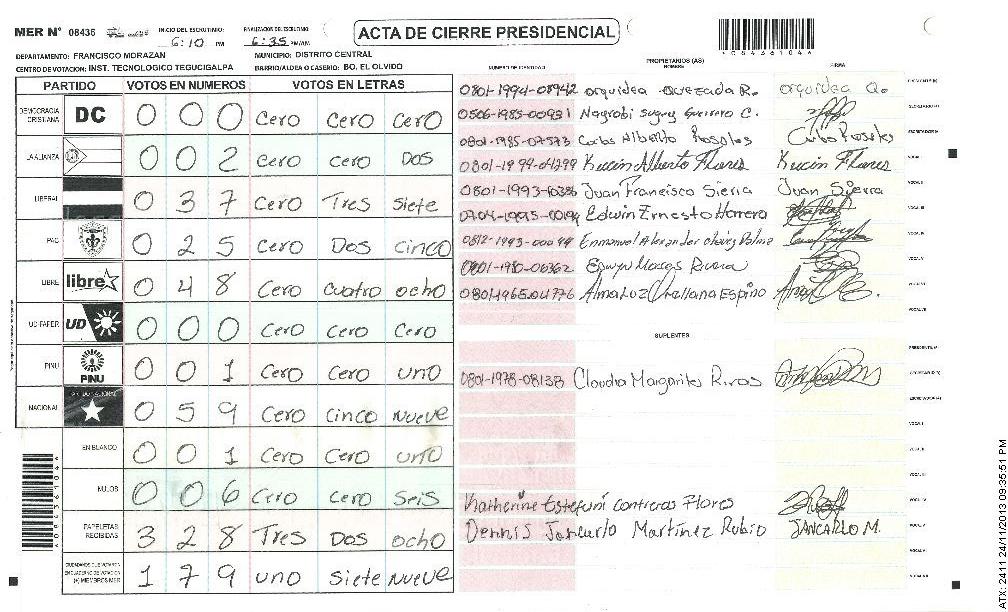 MER Nº 08436
INICIO DEL ESCRUTINIO: 6:10 PM
FINALIZACION DEL ESCRUTINIO: 6:35 PM/AM
ACTA DE CIERRE PRESIDENCIAL
DEPARTAMENTO: FRANCISCO MORAZAN
MUNICIPIO: DISTRITO CENTRAL
CENTRO DE VOTACION: INST. TECNOLOGICO TEGUCIGALPA
BARRIO/ALDEA O CASERIO: BO. EL OLVIDO
PARTIDO VOTOS EN NUMEROS VOTOS EN LETRAS
DEMOCRACIA CRISTIANA DC 0 0 0 Cero Cero Cero
LA ALIANZA 0 0 2 Cero Cero Dos
LIBERAL 0 3 7 Cero Tres Siete
PAC 0 2 5 Cero Dos Cinco
LIBRE libre 0 4 8 Cero Cuatro ocho
UD-FAPER UD 0 0 0 Cero Cero Cero
PINU PINU 0 0 1 Cero Cero uno
NACIONAL 0 5 9 Cero Cinco Nueve
EN BLANCO 0 0 1 Cero Cero uno
NULOS 0 0 6 Cero Cero Seis
PAPELETAS RECIBIDAS 3 2 8 Tres Dos ocho
CIUDADANOS QUE VOTARON EN CUADERNO DE VOTACION (+) MIEMBROS MER 1 7 9 uno Siete Nueve
NUMERO DE IDENTIDAD PROPIETARIOS (AS) NOMBRE FIRMA
0801-1994-08942 orquidea Quezada R. orquidea Q.
0506-1985-00931 C.
0801-1985-07573 Carlos Alberto Rosales Carlos Rosales
0801-1999-04299 Kevin Alberto Flores Kevin Flores
0801-1993-10386 Juan Francisco Sierra Juan Sierra
Edwin Ernesto Herrera
0812-1993-00099 Enmanuel Alexander
0801-1980-06362 Rivera
0801-1965-04776 Alma Luz Orellana Espino
SUPLENTES
0801-1978-08138 Claudia Margarita Rivas
Katherine Estefani Contreras Flores
Dennis Jancarlo Martinez Rubio JANCARLO M.
ATX: 2411 24/11/2013 09:35:51 PM